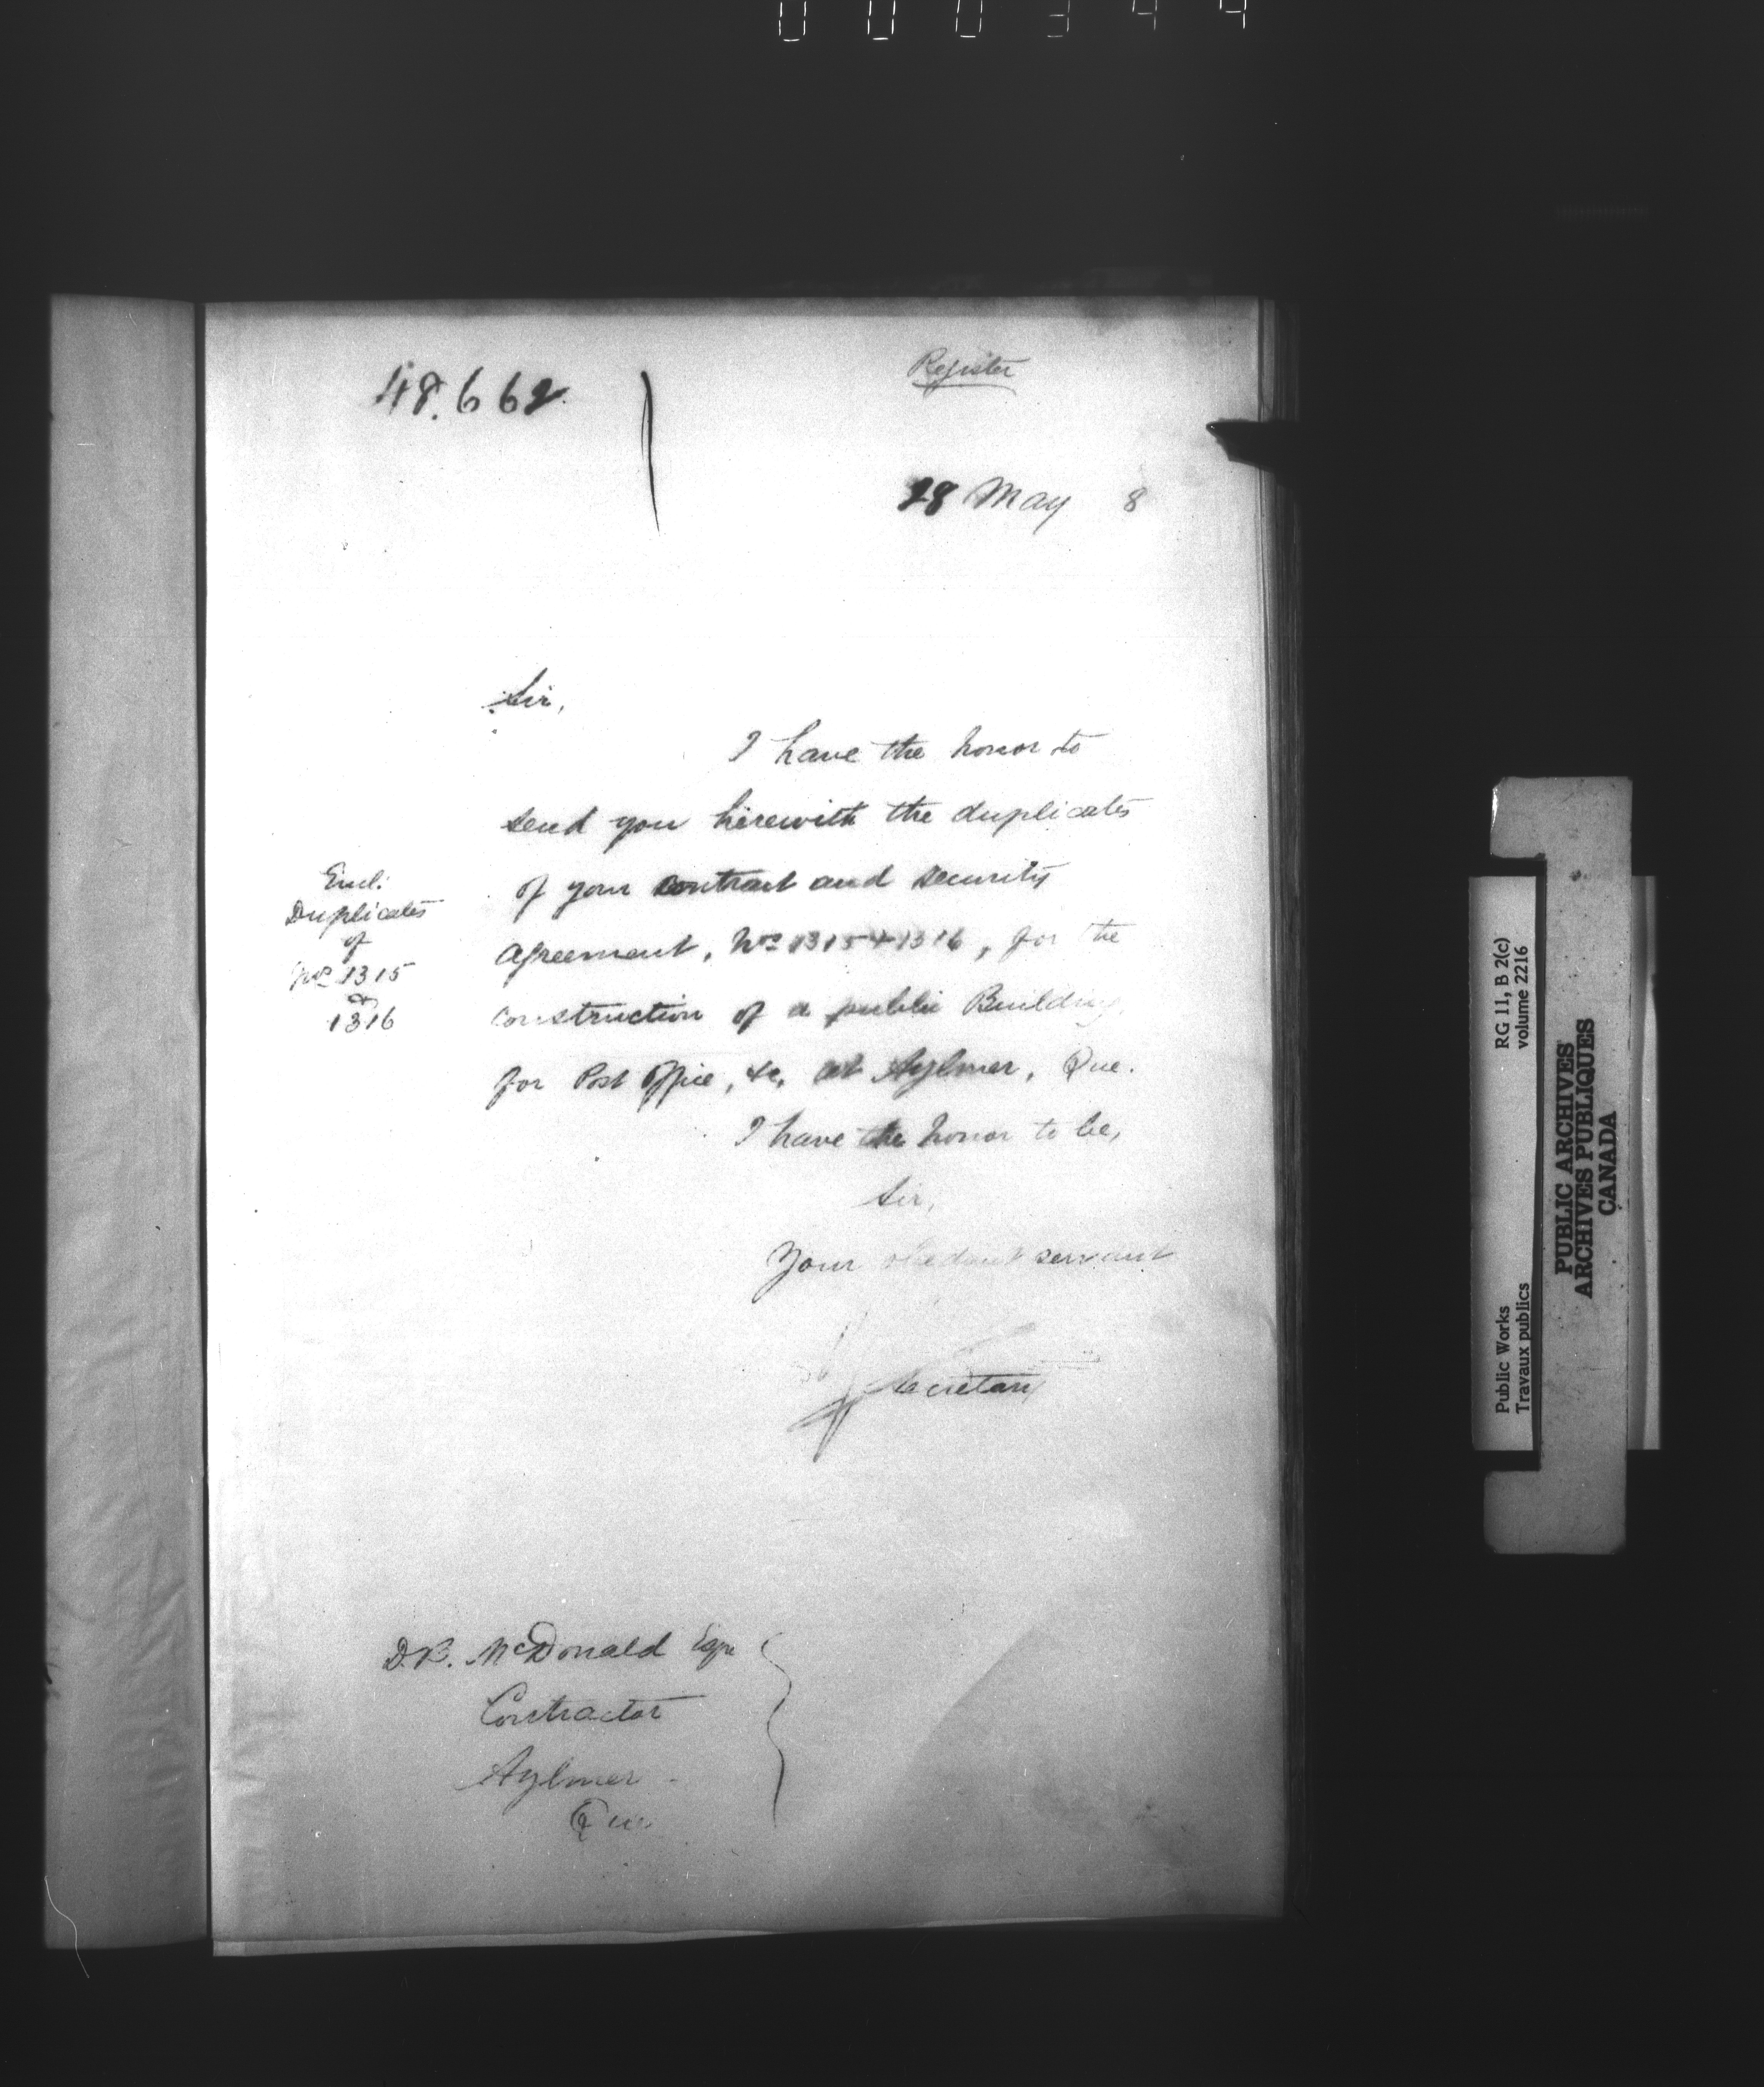 000344
48.662
Register
28 May 8
Sir,
I have the honor to
send you herewith the duplicates
of your contract and security
agreement, Nos 1315 & 1316, for the
construction of a public Building
for Post Office, &c, at Aylmer, Que.
I have the honor to be,
Sir,
Your obedient servant
Secretary
Encl:
Duplicates
of
Nos 1315
&
1316
D.B. McDonald Esqre
Contractor
Aylmer
Que
Public Works RG 11, B 2(c)
Travaux publics volume 2216
PUBLIC ARCHIVES
ARCHIVES PUBLIQUES
CANADA